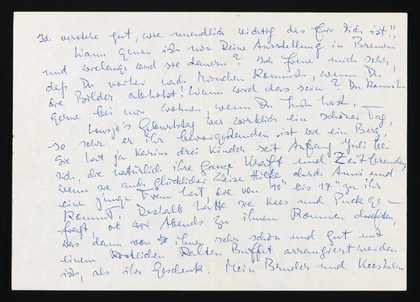 Ich verstehe gut, wie unendlich wichtig das für Dich ist!!
Wann genau ist nun Deine Ausstellung in Bremen
und wielange wird sie dauern? Ich freue mich sehr,
daß Du vorher nach München kommst, wenn Du
die Bilder abholst! Wann wird das sein? Du kannst
gerne bei mir wohnen, wenn Du Lust hast. —
Geburtstag war wirklich ein schöner Tag,
so sehr er ihr bevorgestanden ist wie ein Berg.
Sie hat ja Karins drei Kinder seit Anfang Juli bei
sich, die natürlich ihre ganze Kraft und Zeit
wenn sie auch glücklicher Weise Hilfe durch Anni und
eine junge Frau hat, die von 10 bis 17 zu ihr
kommt. Deshalb hatte sie Kees und ge-
fragt, ob wir Abends zu ihnen kommen dürften,
was dann von ihnen sehr schön und gut mit
einem köstlichen kalten Buffet arrangiert worden
ist, als ihr Geschenk. Mein Bruder und